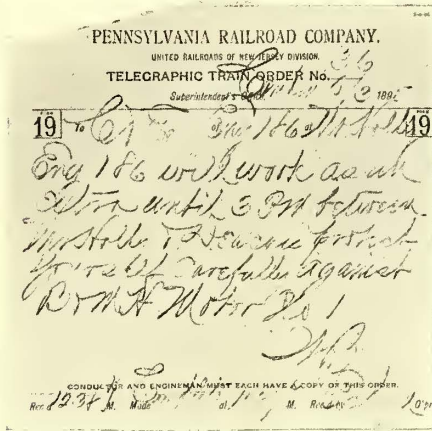 PENNSYLVANIA RAILROAD COMPANY.
UNITED RAILROADS OF NEW JERSEY DIVISION.
TELEGRAPHIC TRAIN ORDER No. 36
Superintendent's Office, 189
19 To Eng 186 Mt Holly 19
Eng 186 will work as an
Extra until 3 PM between
Mt Holly &
yourself Carefully against
Motor No 1
CONDUCTOR AND ENGINEMAN MUST EACH HAVE A COPY OF THIS ORDER.
Rec'd 1238 P M. Made at M. Rec'd by